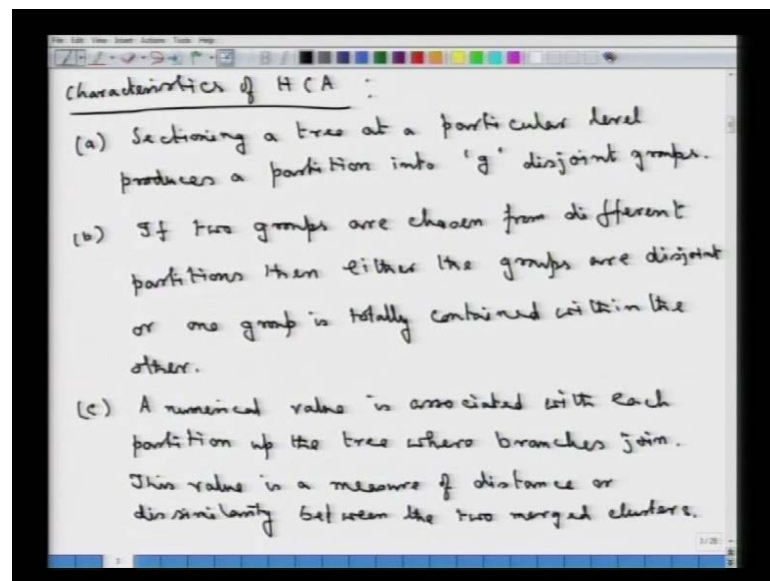 File Edit View Insert Actions Tools Help
Characteristics of HCA :
(a) Sectioning a tree at a particular level
produces a partition into 'g' disjoint groups.
(b) If two groups are chosen from different
partitions then either the groups are disjoint
or one group is totally contained within the
other.
(c) A numerical value is associated with each
partition up the tree where branches join.
This value is a measure of distance or
dissimilarity between the two merged clusters.